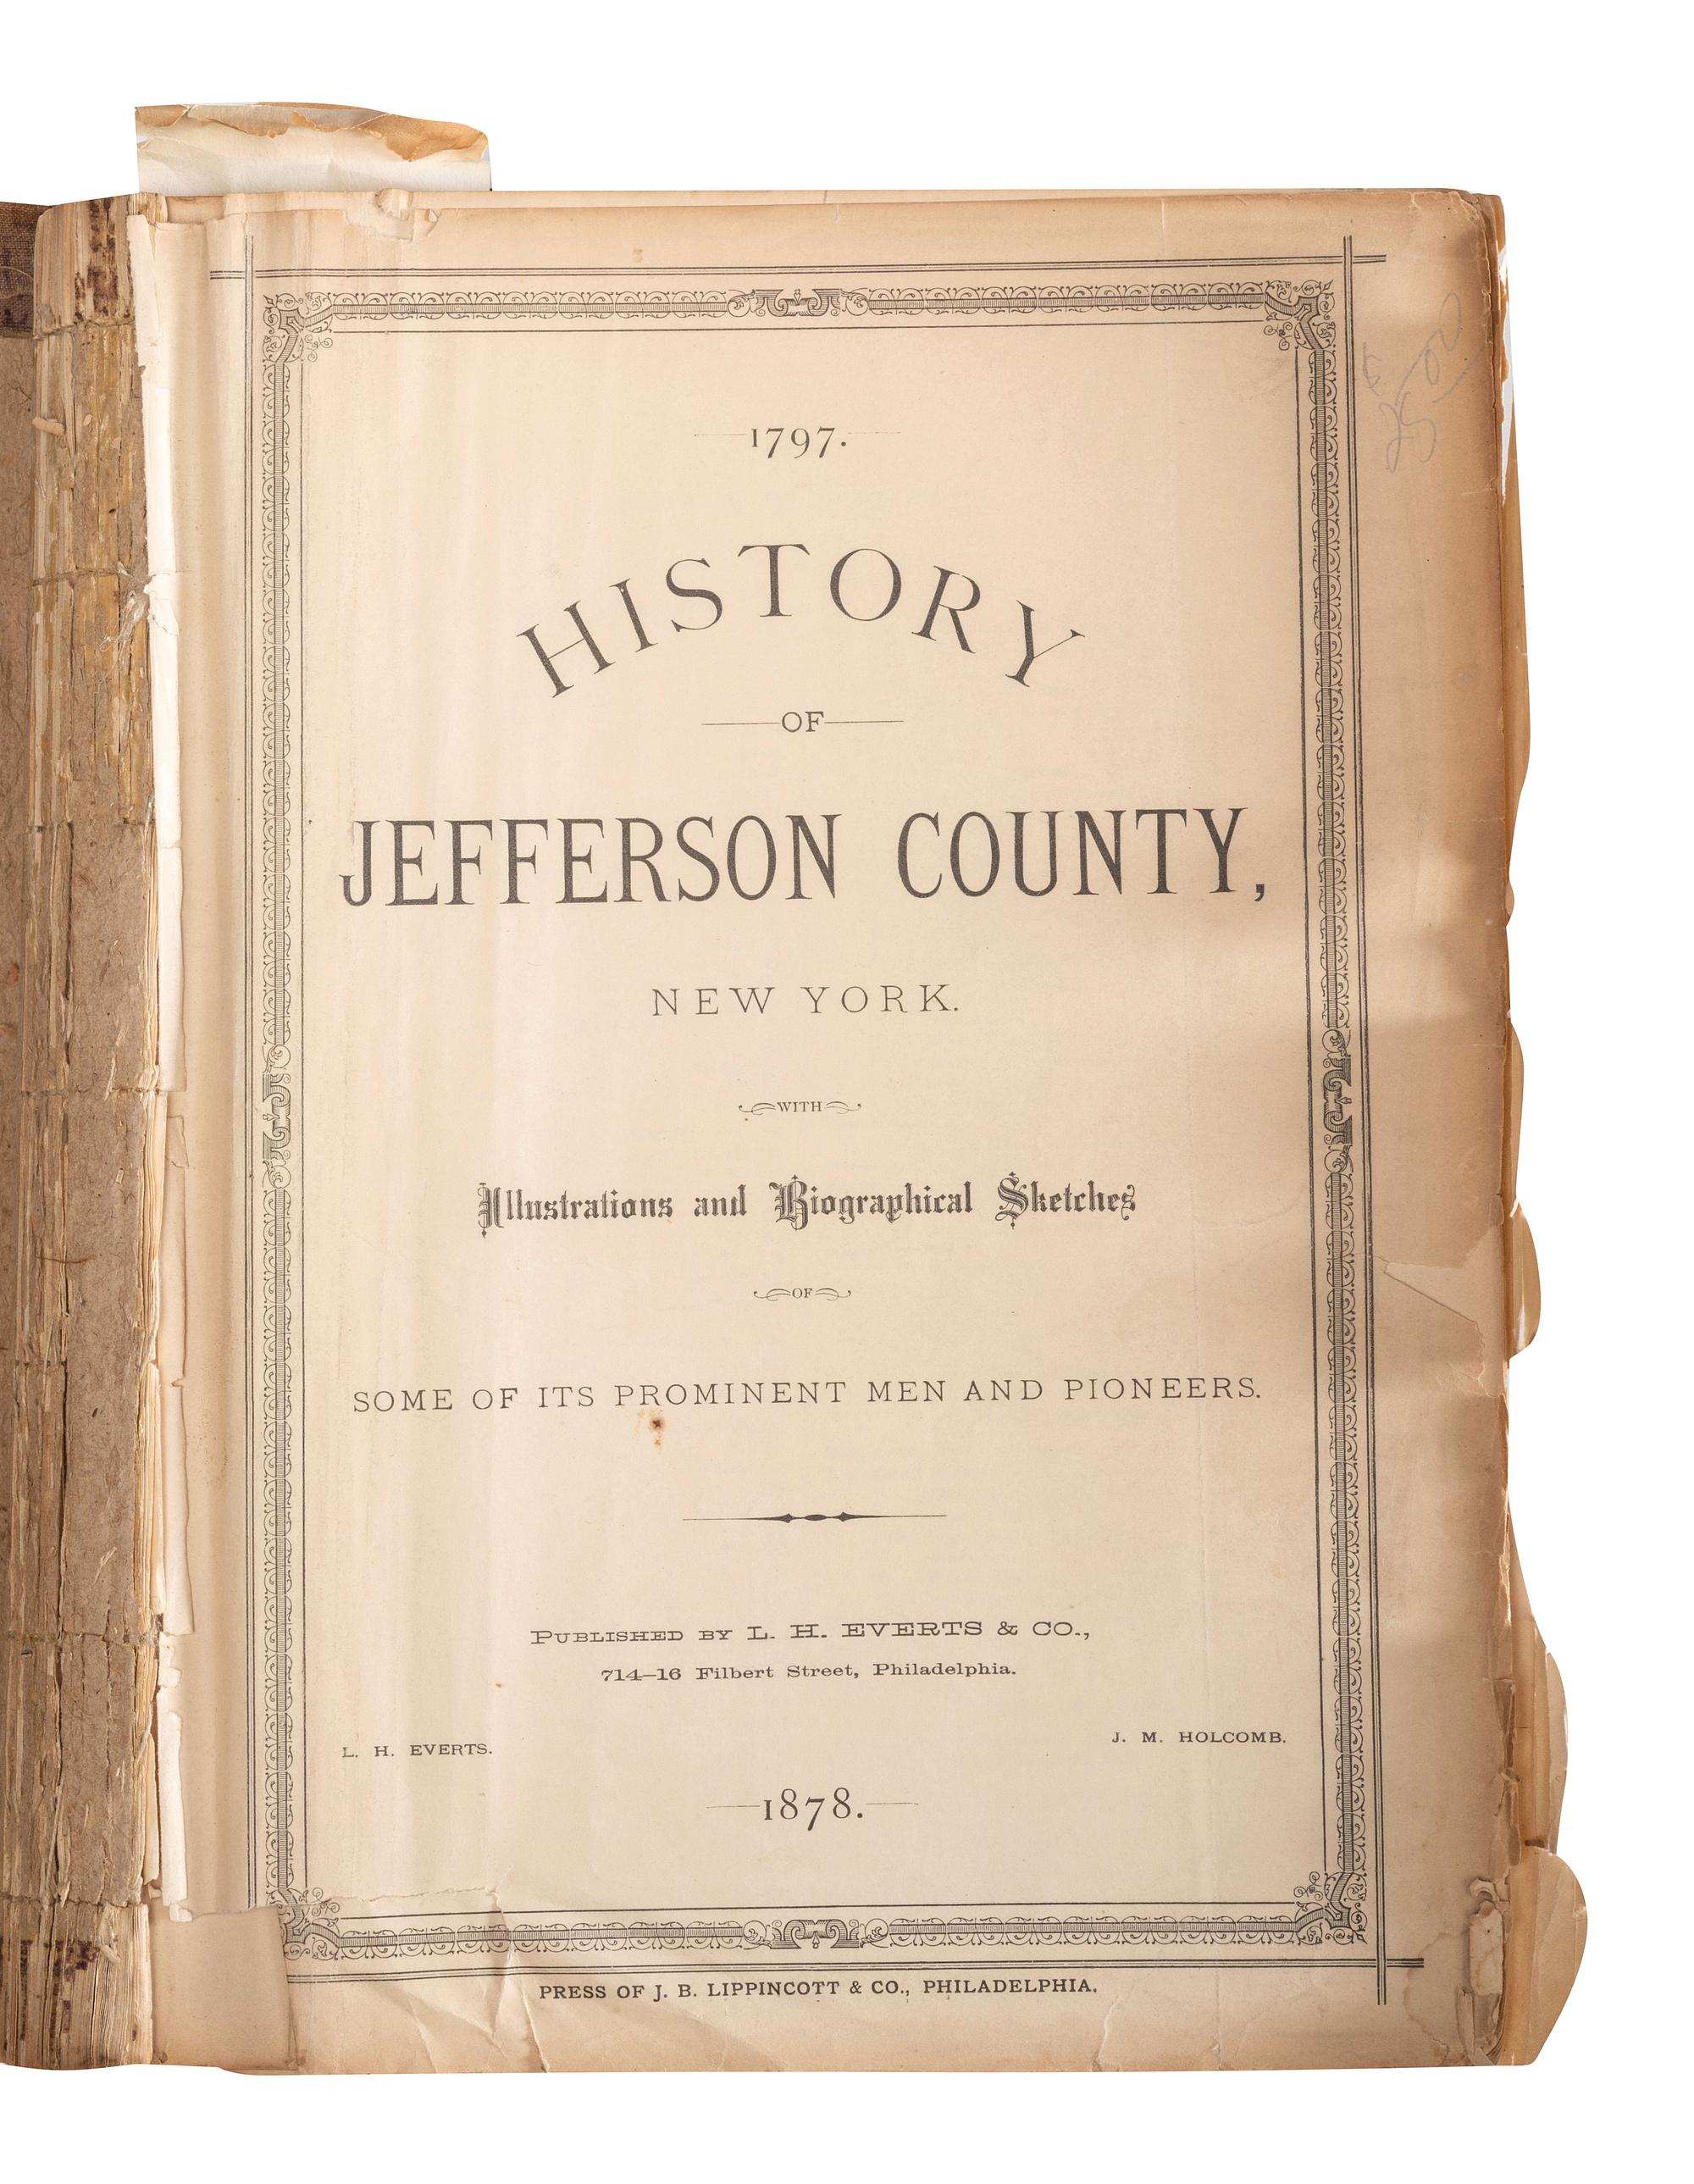 1797.
HISTORY
OF
JEFFERSON COUNTY,
NEW YORK.
WITH
Illustrations and Biographical Sketches
OF
SOME OF ITS PROMINENT MEN AND PIONEERS.
PUBLISHED BY L. H. EVERTS & CO.,
714–16 Filbert Street, Philadelphia.
L. H. EVERTS. J. M. HOLCOMB.
1878.
PRESS OF J. B. LIPPINCOTT & CO., PHILADELPHIA.